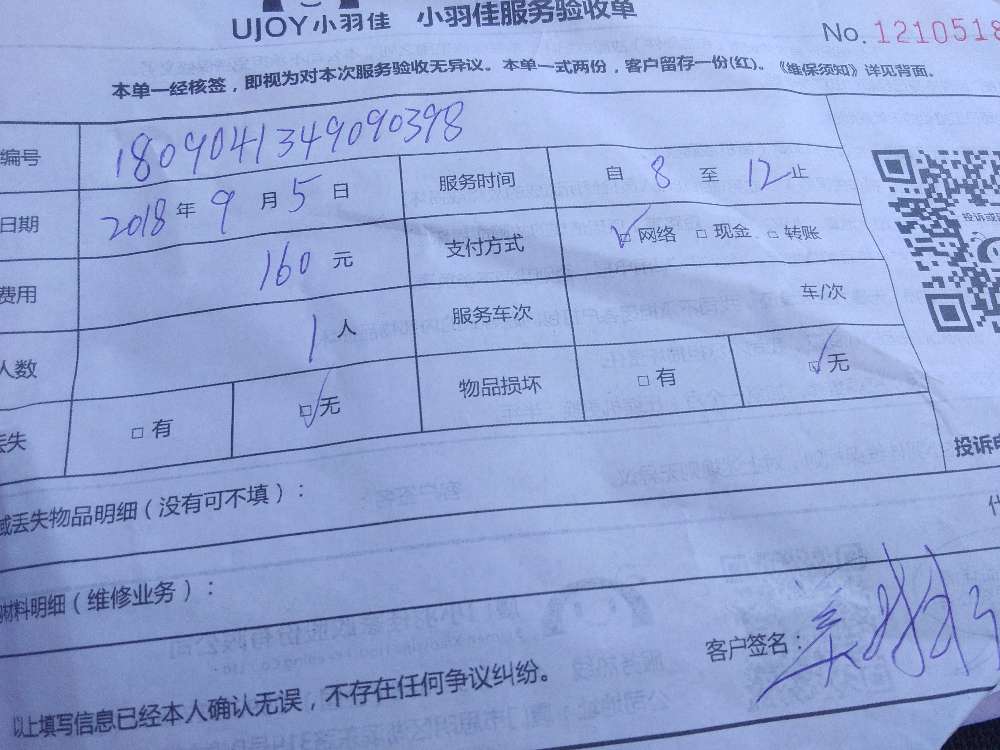 UJOY小羽佳 小羽佳服务验收单
No. 1210518
本单一经核签，即视为对本次服务验收无异议。本单一式两份，客户留存一份(红)。《维保须知》详见背面。
编号 1809041349090398
日期 2018年9月5日 服务时间 自8至12止
费用 160元 支付方式 ☑网络 □现金 □转账
人数 1人 服务车次 车/次
丢失 □有 ☑无 物品损坏 □有 ☑无
投诉
或丢失物品明细（没有可不填）：
材料明细（维修业务）：
客户签名：
以上填写信息已经本人确认无误，不存在任何争议纠纷。